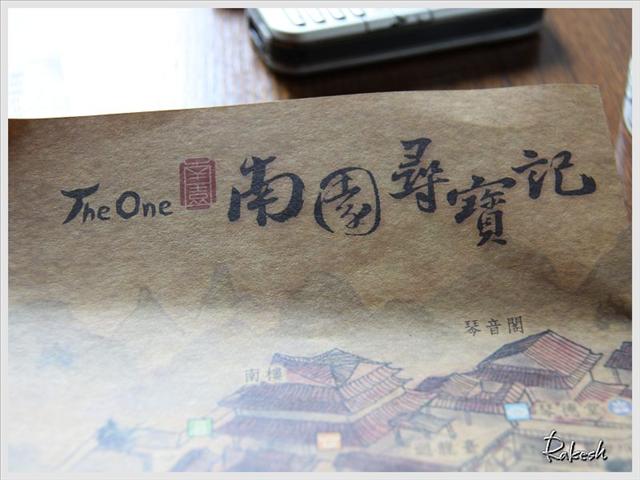 The One 南園 南園尋寶記
琴音閣
南樓
Rakesh